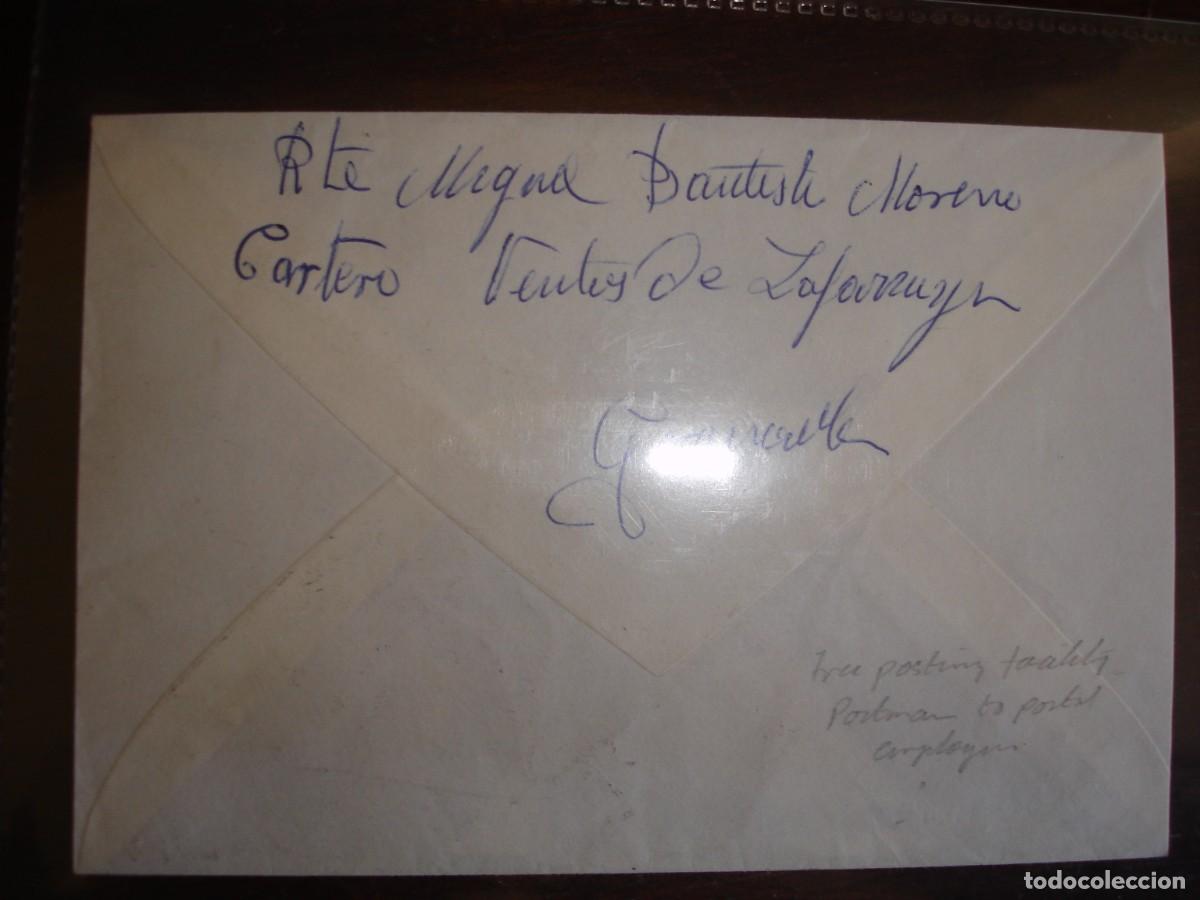 Rte Miguel Bautista Moreno
Cartero Ventas De Zafarraya
Granada
free posting facility
Postman to postal
employee
todocoleccion